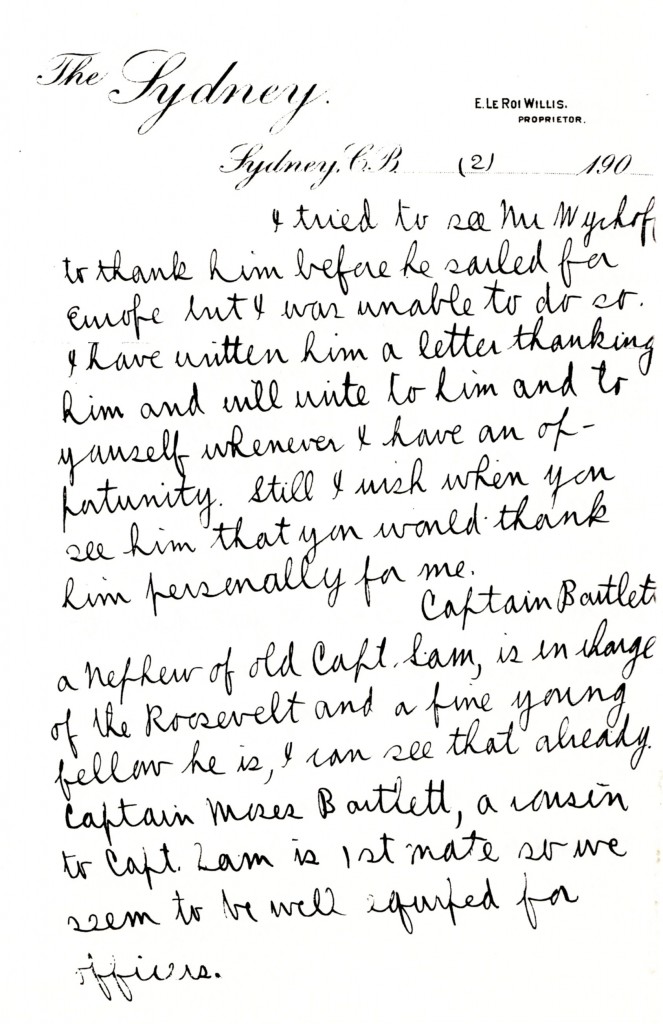 The Sydney.
E. LE ROI WILLIS.
PROPRIETOR.
Sydney, C.B. (2) 190
I tried to see Mr Wyckoff
to thank him before he sailed for
Europe but I was unable to do so.
I have written him a letter thanking
him and will write to him and to
yourself whenever I have an op-
portunity. Still I wish when you
see him that you would thank
him personally for me.
Captain Bartlett
a nephew of old Capt. Sam, is in charge
of the Roosevelt and a fine young
fellow he is, I can see that already.
Captain Moses Bartlett, a cousin
to Capt. Sam is 1st mate so we
seem to be well equipped for
officers.